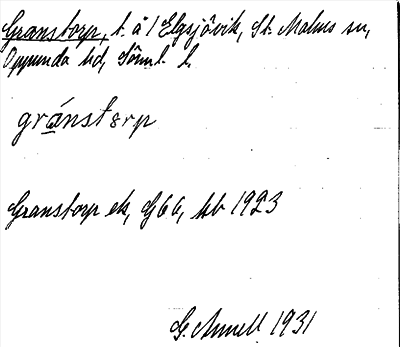 Granstorp, t. å 1 Elgsjövik, St. Malms sn,
Oppunda hd, Söml. l.
gránstɛrp
Granstorp ek, G66, kb 1923
G. Annell 1931